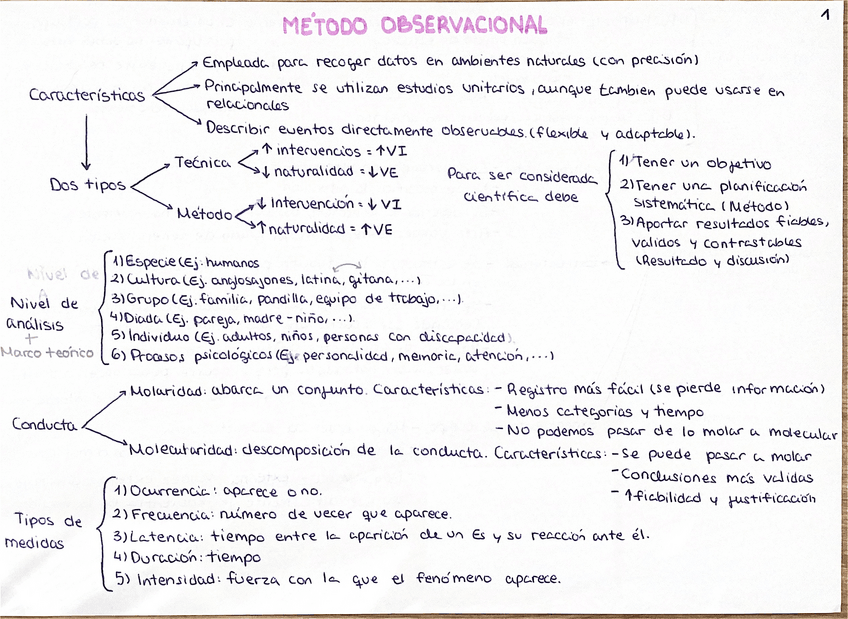 1
MÉTODO OBSERVACIONAL
Características
Empleada para recoger datos en ambientes naturales (con precisión)
Principalmente se utilizan estudios unitarios, aunque tambien puede usarse en
relacionales
Describir eventos directamente observables. (flexible y adaptable).
Dos tipos
Técnica
↑ intervencios = ↑ VI
↓ naturalidad = ↓ VE
Método
↓ Intervención = ↓ VI
↑ naturalidad = ↑ VE
Para ser considerada
científica debe
1) Tener un objetivo
2) Tener una planificación
sistemática (Método)
3) Aportar resultados fiables,
validos y contrastables
(Resultado y discusión)
Nivel de
Nivel de
análisis
+
Marco teórico
1) Especie (Ej. humanos
2) Cultura (Ej. anglosajones, latina, gitana, ...)
3) Grupo (Ej. familia, pandilla, equipo de trabajo, ...).
4) Diada (Ej. pareja, madre-niño, ...).
5) Individuo (Ej. adultos, niños, personas con discapacidad).
6) Procasos psicológicos (Ej. personalidad, memoria, atención, ...)
Conducta
Molaridad: abarca un conjunto. Características: - Registro más fácil (se pierde información)
- Menos categorías y tiempo
- No podemos pasar de lo molar a molecular
Molecularidad: descomposición de la conducta. Características: - Se puede pasar a molar
- Conclusiones más validas
- ↑ fiabilidad y justificación
Tipos de
medidas
1) Ocurrencia: aparece o no.
2) Frecuencia: número de vecer que aparece.
3) Latencia: tiempo entre la aparición de un Es y su reacción ante él.
4) Duración: tiempo
5) Intensidad: fuerza con la que el fenómeno aparece.